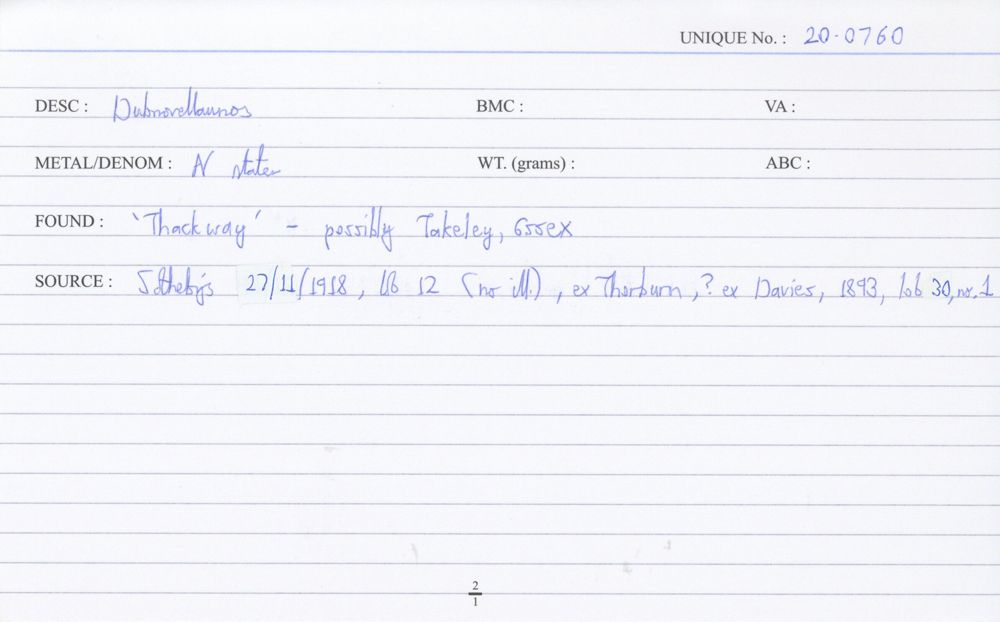 UNIQUE No. : 20-0760
DESC : Dubnovellaunos BMC : VA :
METAL/DENOM : N stater WT. (grams) : ABC :
FOUND : 'Thackway' - possibly Takeley, Essex
SOURCE : Sotheby's 27/11/1918, lot 12 (no ill.), ex Thorburn, ? ex Davies, 1893, lot 30, no. 1
2
1